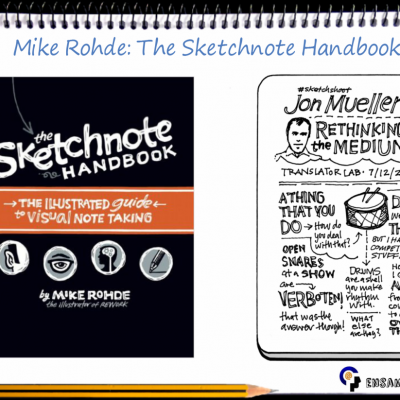 Mike Rohde: The Sketchnote Handbook
the
Sketchnote
HANDBOOK
→ THE ILLUSTRATED guide ←
to VISUAL NOTE TAKING
by MIKE ROHDE
the illustrator of REWORK
#sketchshoot
Jon Mueller
RETHINKING
the MEDIUM
TRANSLATOR LAB · 7/12/2
A THING
THAT YOU
DO → How do
you deal
with that?
OPEN
SNARES
at a SHOW
are →
VERBOTEN!
that was the
answer though!
DRUMS
are a shell
you make
rhythm
with.
WHAT
ELSE
are they?
BUT I HA
COMPET
STUFF